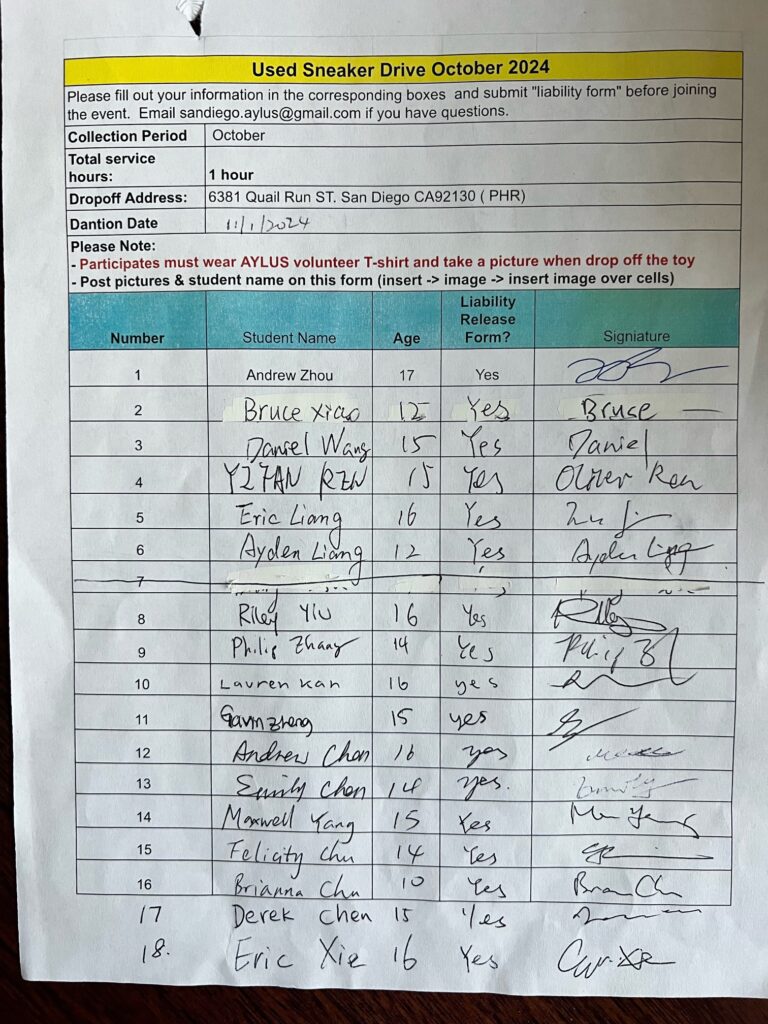 Used Sneaker Drive October 2024
Please fill out your information in the corresponding boxes and submit "liability form" before joining
the event. Email sandiego.aylus@gmail.com if you have questions.
Collection Period October
Total service
hours: 1 hour
Dropoff Address: 6381 Quail Run ST. San Diego CA92130 ( PHR)
Dantion Date 11/1/2024
Please Note:
- Participates must wear AYLUS volunteer T-shirt and take a picture when drop off the toy
- Post pictures & student name on this form (insert -> image -> insert image over cells)
Number Student Name Age Liability Release Form? Signiature
1 Andrew Zhou 17 Yes
2 Bruce xiao 12 Yes Bruce
3 Daniel Wang 15 Yes Daniel
4 YIFAN REN 15 Yes Oliver Ren
5 Eric Liang 16 Yes
6 Ayden Liang 12 Yes Ayden Liang
7
8 Riley Yiu 16 Yes Riley
9 Philip Zhang 14 Yes Philip Z
10 Lauren Kan 16 yes
11 Gavin zheng 15 yes
12 Andrew Chen 16 yes
13 Emily Chen 14 yes.
14 Maxwell Yang 15 Yes
15 Felicity Chu 14 Yes
16 Brianna Chu 10 Yes
17 Derek Chen 15 Yes
18. Eric Xie 16 Yes